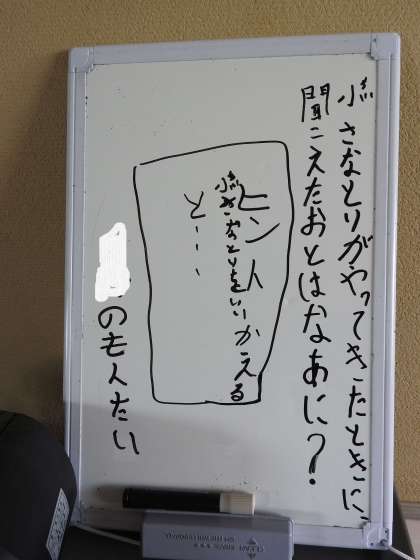 小さなとりがやってきたときに、
聞こえたおとはなあに？
ヒント
小さなとりをいいかえる
と…
のもんたい